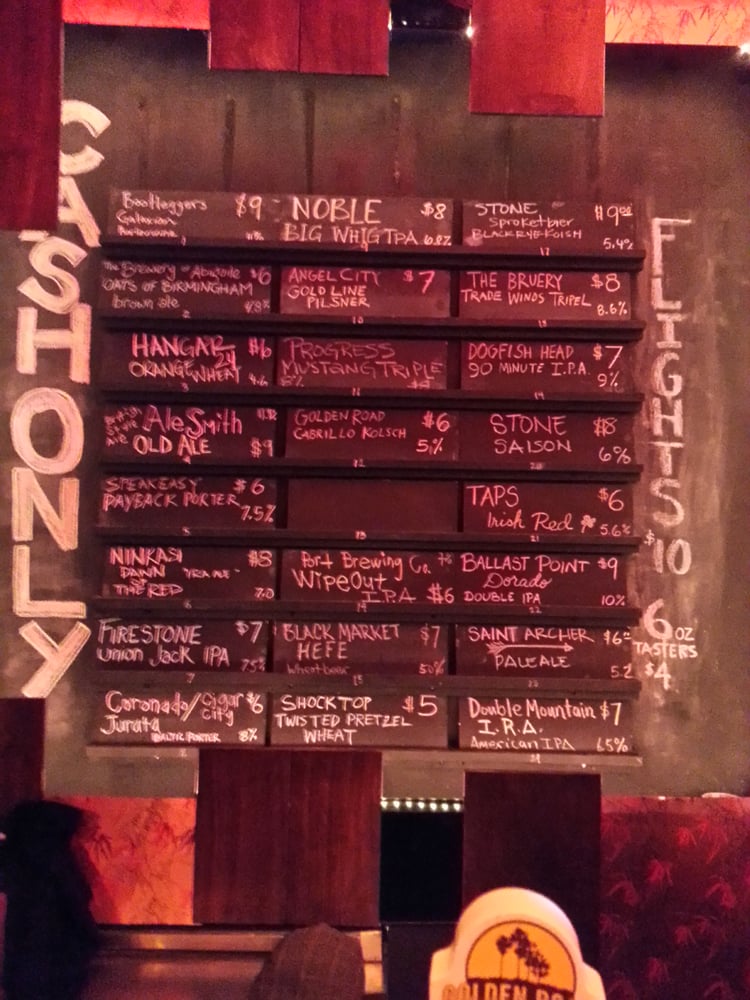 CASH ONLY
Bootleggers $9
NOBLE $8
BIG WHIG IPA 6.8%
STONE $9.00
Sproketbier
BLACK RYE KOLSH 5.4%
The Brewery at Abigaile $6
OATS OF BIRMINGHAM
brown ale
ANGEL CITY $7
GOLD LINE
PILSNER
THE BRUERY $8
TRADE WINDS TRIPEL
8.6%
HANGAR 24 $6
ORANGE WHEAT 4.6
PROGRESS
MUSTANG TRIPLE
8%
DOGFISH HEAD $7
90 MINUTE I.P.A.
9%
AleSmith
OLD ALE $9
GOLDEN ROAD $6
CABRILLO KOLSCH 5%
STONE $8
SAISON 6%
SPEAKEASY $6
PAYBACK PORTER
7.5%
TAPS $6
Irish Red 5.6%
NINKASI $8
DAWN
OF
THE RED 7.0
Port Brewing Co.
WIPEOUT
I.P.A $6
BALLAST POINT $9
Dorado
DOUBLE IPA 10%
FIRESTONE $7
Union Jack IPA 7.5%
BLACK MARKET $7
HEFE
Wheat beer 5.0%
SAINT ARCHER $6
PALE ALE 5.2
Coronado/Cigar City $6
Jurata
BALTIC PORTER 8%
SHOCKTOP $5
TWISTED PRETZEL
WHEAT
Double Mountain $7
I.R.A.
American IPA 6.5%
FLIGHTS
$10
6 OZ
TASTERS
$4